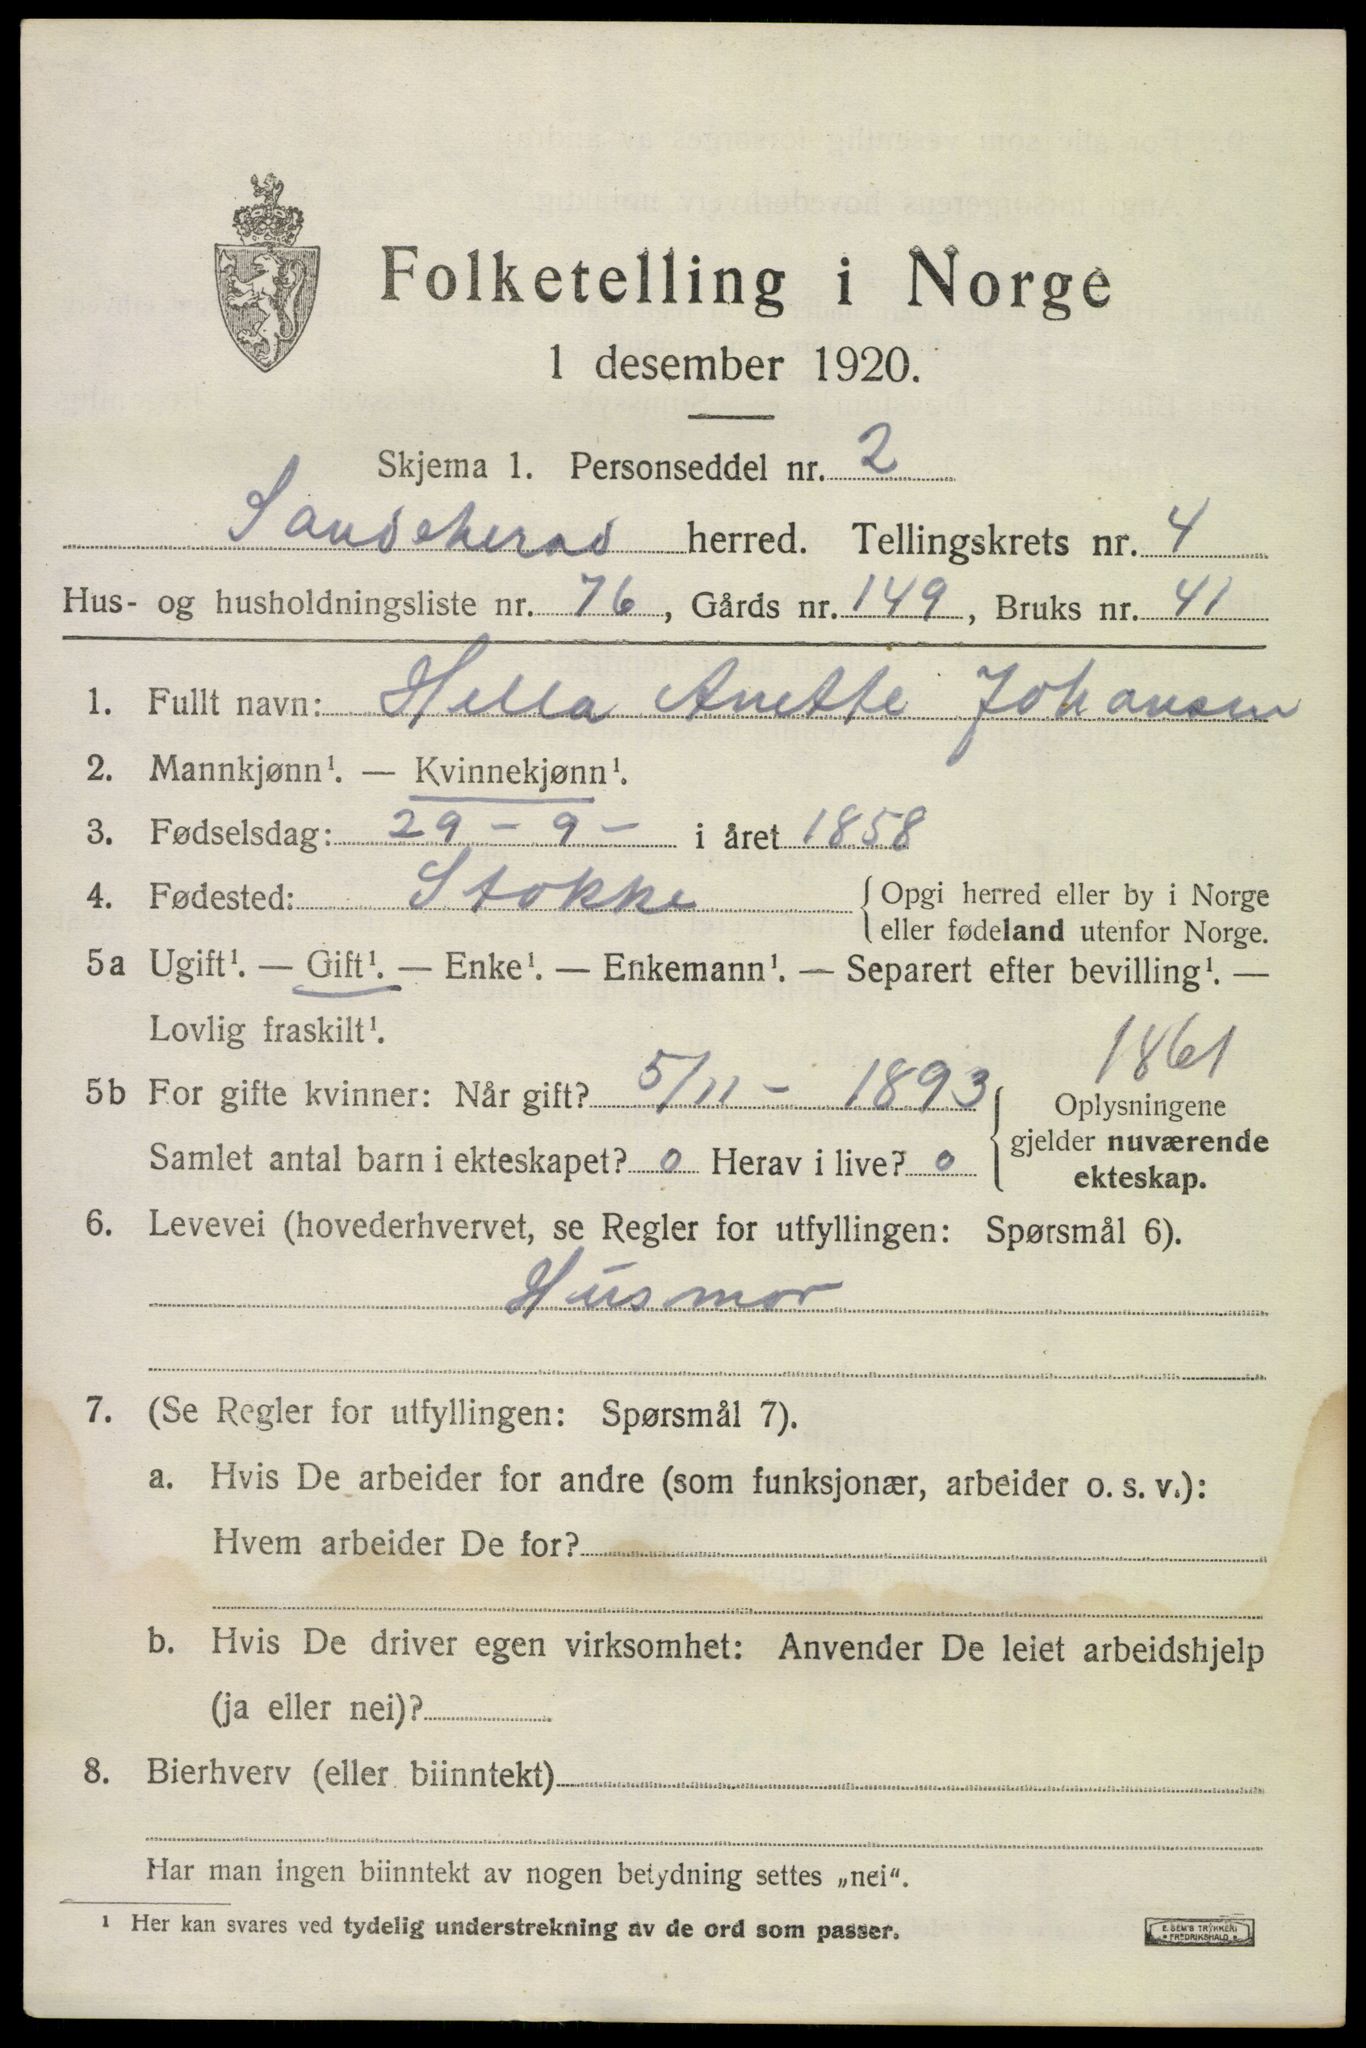 Folketelling i Norge
1 desember 1920.
Skjema 1. Personseddel nr. 2
Sandeherad herred. Tellingskrets nr. 4
Hus- og husholdningsliste nr. 76, Gårds nr. 149, Bruks nr. 41
1. Fullt navn: Hella Anette Johansen
2. Mannkjønn¹. — Kvinnekjønn¹.
3. Fødselsdag: 29 - 9 - i året 1858
4. Fødested: Stokke { Opgi herred eller by i Norge
eller fødeland utenfor Norge.
5a Ugift¹. — Gift¹. — Enke¹. — Enkemann¹. — Separert efter bevilling¹. —
Lovlig fraskilt¹.
1861
5b For gifte kvinner: Når gift? 5/11 - 1893
Samlet antal barn i ekteskapet? 0 Herav i live? 0
Oplysningene
gjelder nuværende
ekteskap.
6. Levevei (hovederhvervet, se Regler for utfyllingen: Spørsmål 6).
Husmor
7. (Se Regler for utfyllingen: Spørsmål 7).
a. Hvis De arbeider for andre (som funksjonær, arbeider o. s. v.):
Hvem arbeider De for?
b. Hvis De driver egen virksomhet: Anvender De leiet arbeidshjelp
(ja eller nei)?
8. Bierhverv (eller biinntekt)
Har man ingen biinntekt av nogen betydning settes „nei“.
¹ Her kan svares ved tydelig understrekning av de ord som passer.
E. SEM'S TRYKKERI
FREDRIKSHALD